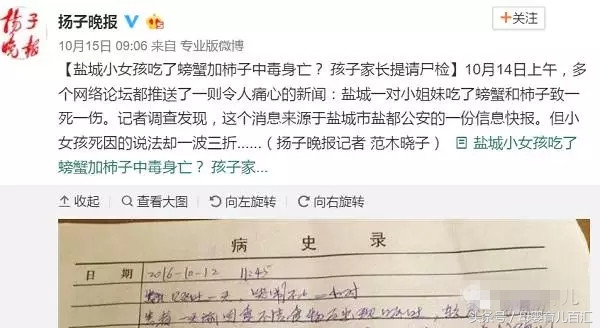 扬子晚报
扬子晚报
+关注
10月15日 09:06 来自 专业版微博
【盐城小女孩吃了螃蟹加柿子中毒身亡？孩子家长提请尸检】10月14日上午，多
个网络论坛都推送了一则令人痛心的新闻：盐城一对小姐妹吃了螃蟹和柿子致一
死一伤。记者调查发现，这个消息来源于盐城市盐都公安的一份信息快报。但小
女孩死因的说法却一波三折......（扬子晚报记者 范木晓子） 盐城小女孩吃了
螃蟹加柿子中毒身亡？孩子家...
收起 查看大图 向左旋转 向右旋转
病 史 录
日 期 2016-10-12 11:45
头条号/母婴育儿百汇